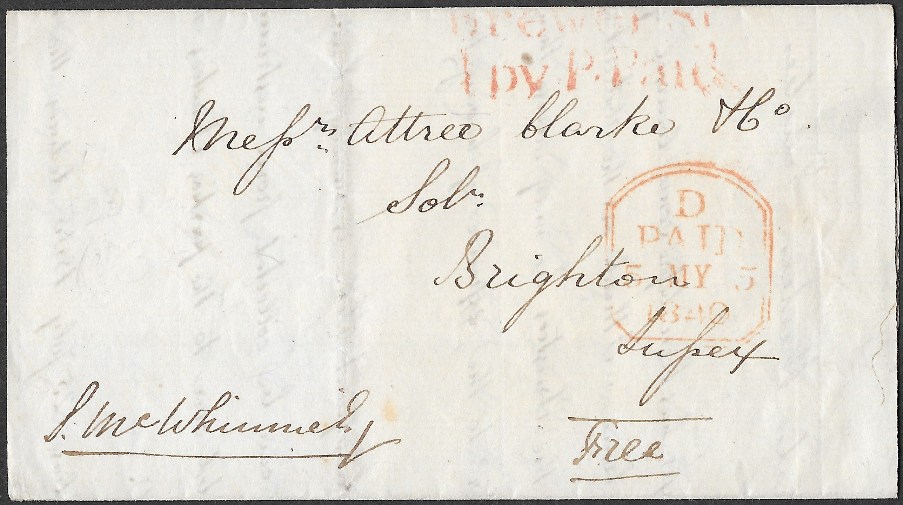 Brewer St
1py P. Paid
Messrs. Attree Clarke & Co.
Solrs.
Brighton
Sussex
D
PAID
5 MY 5
1840
Free